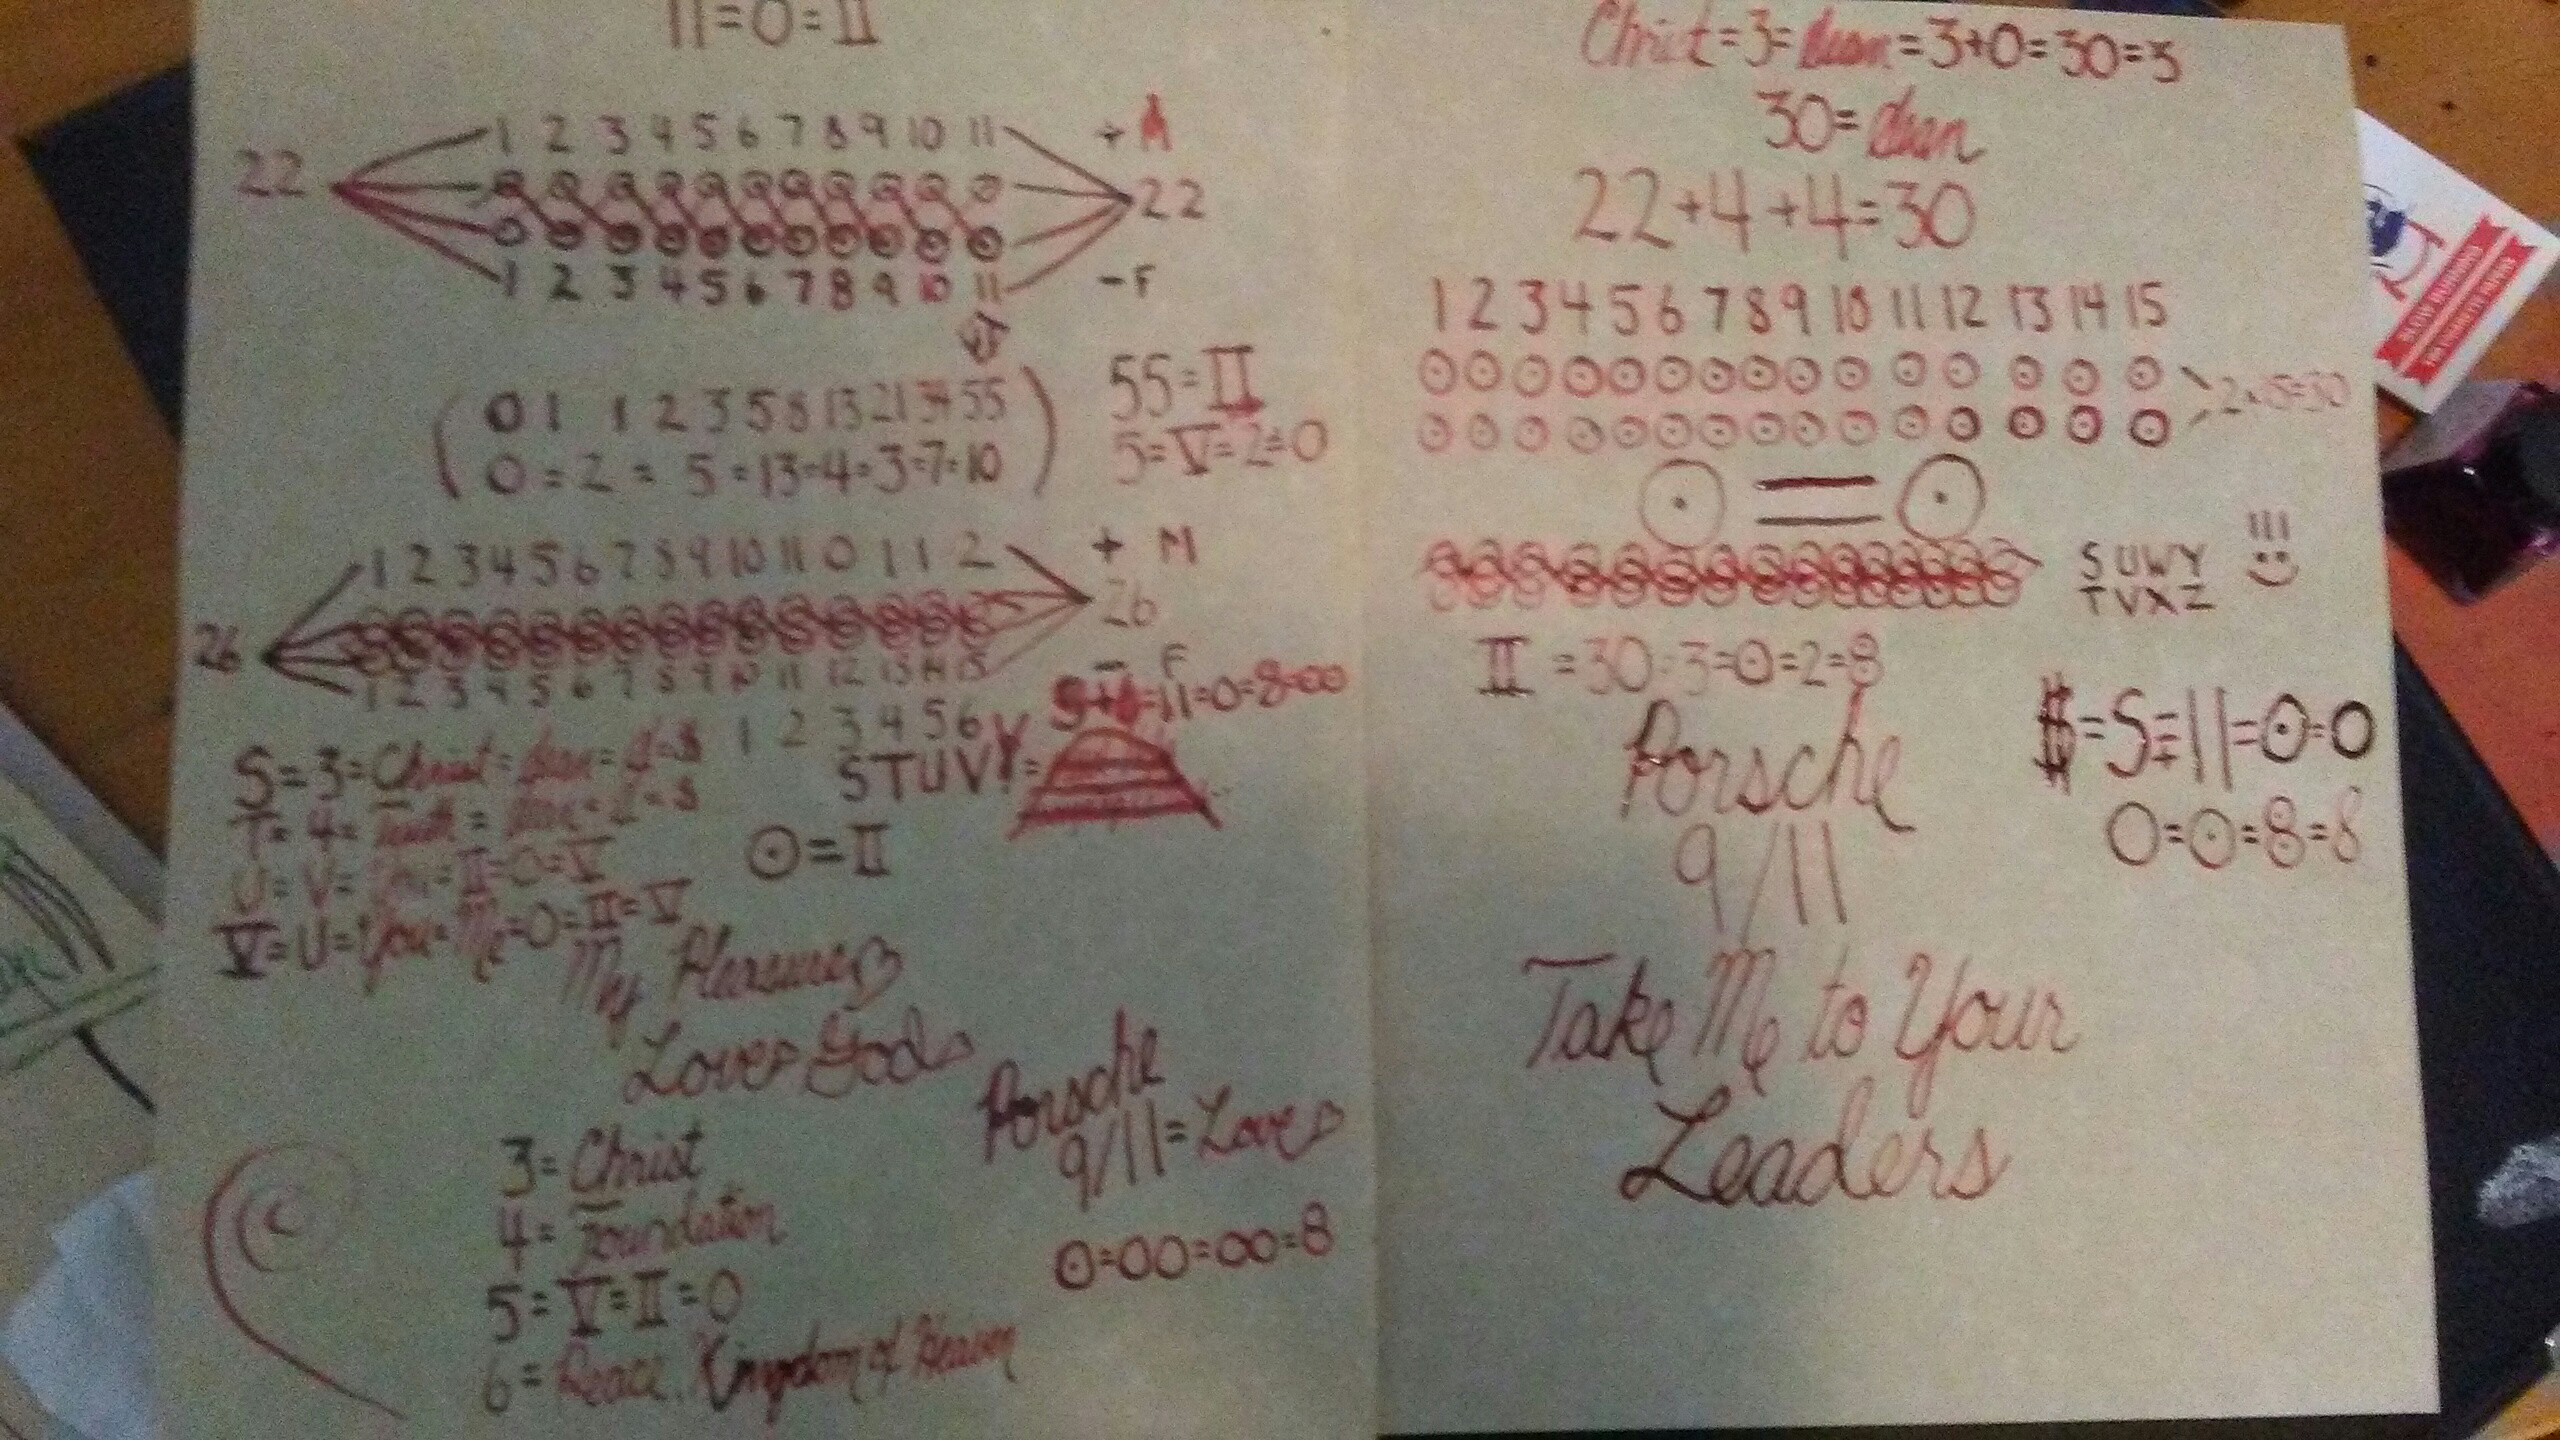 11=0=II
22
1 2 3 4 5 6 7 8 9 10 11
+
22
1 2 3 4 5 6 7 8 9 10 11
- F
0 1 1 2 3 5 8 13 21 34 55
0 = 2 = 5 = 13 = 4 = 3 = 7 = 10
55 = II
5 = V = 2 = 0
1 2 3 4 5 6 7 8 9 10 11 0 1 1 2
+ M
26
26
- F
1 2 3 4 5 6 7 8 9 10 11 12 13 14 15
=11=0=8=00
1 2 3 4 5 6
STUVY=
S = 3 = Christ =
T = 4 =
U = V = = II = 0 = V
V = U = You = Me = 0 = II = V
⊙ = II
My Pleasure
Love God
Porsche
9/11 = Love
3 = Christ
4 = Foundation
5 = V = II = 0
6 = Peace. Kingdom of Heaven
0=00=00=8
Christ = 3 = = 3+0=30=3
30 =
22+4+4=30
1 2 3 4 5 6 7 8 9 10 11 12 13 14 15
2×15=30
⊙ = ⊙
S U W Y
T V X Z
II = 30 = 3 = 0 = 2 = 8
Porsche
9/11
$ = S = 11 = ⊙ = 0
0 = ⊙ = 8 = 8
Take Me to Your
Leaders